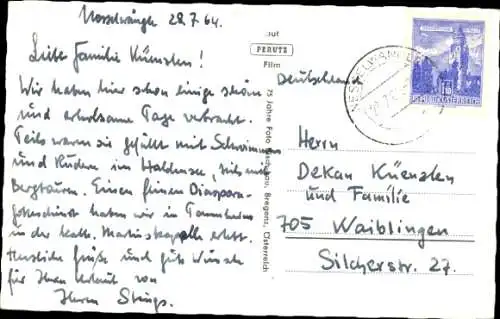 Nesselwängle 28.7.64.
Liebe Familie Künzlen!
Wir haben hier schon einige schöne
und erholsame Tage verbracht.
Teils waren sie gefüllt mit Schwimmen
und Rudern im Haldensee, teils mit
Bergtouren. Einen feinen Diaspora-
gottesdienst haben wir in Tannheim
in der kath. Martinskapelle erlebt.
Herzliche Grüße und gute Wünsche
für Ihren Urlaub von
Ihrem
auf
PERUTZ
Film
75 Jahre Foto Bregenz, Österreich
NESSELWÄNGLE
REPUBLIK ÖSTERREICH
Deutschland
Herrn
Dekan Künzlen
und Familie
705 Waiblingen
Silcherstr. 27.